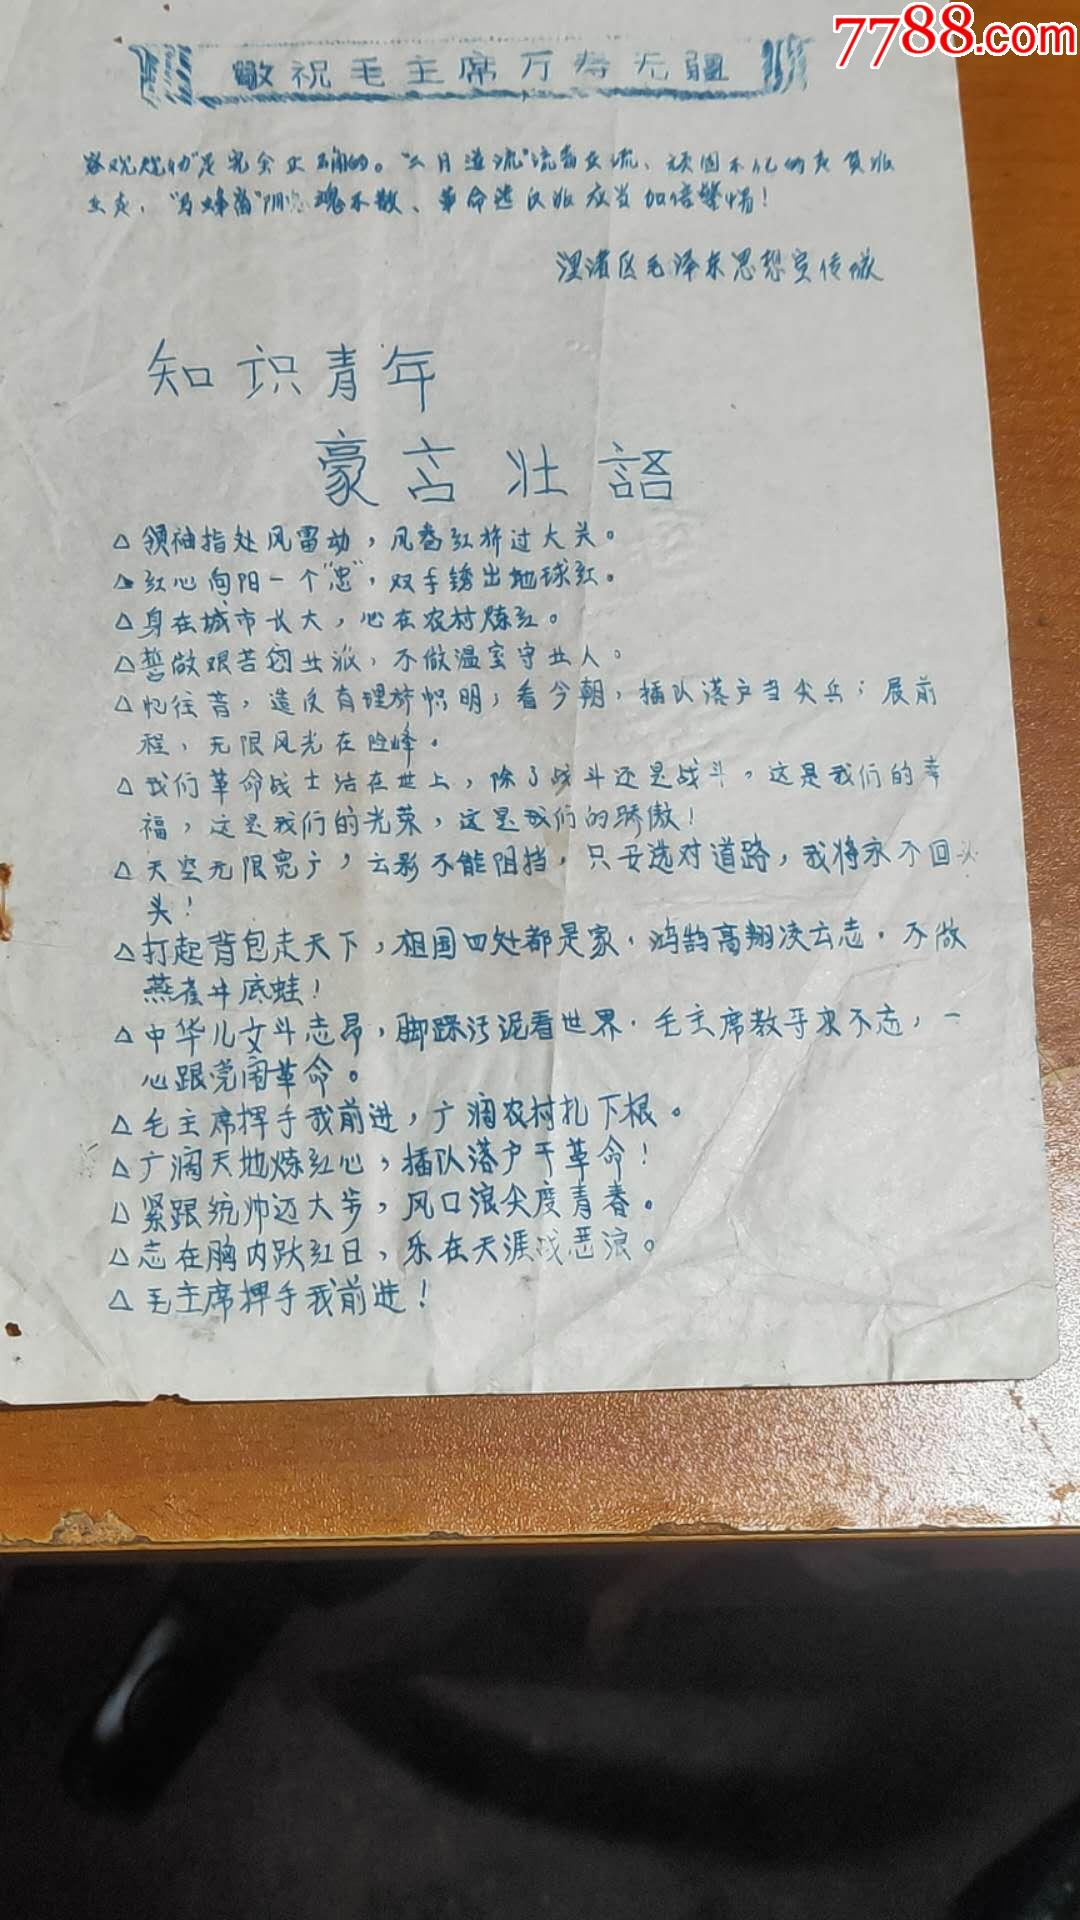 7788.com
敬祝毛主席万寿无疆
是完全正确的。"二月逆流"流毒未流、顽固不化的走资派
阴魂不散、革命造反派应当加倍警惕!
湮渚区毛泽东思想宣传队
知识青年
豪言壮語
△领袖指处风雷动,风卷红旗过大关。
△红心向阳一个"忠",双手锈出地球红。
△身在城市长大,心在农村炼红。
△誓做艰苦创业派,不做温室守业人。
△忆往昔,造反有理旗帜明;看今朝,插队落户当尖兵;展前
程,无限风光在险峰。
△我们革命战士活在世上,除了战斗还是战斗,这是我们的幸
福,这是我们的光荣,这是我们的骄傲!
△天空无限宽广,云彩不能阻挡,只要选对道路,我将永不回头
头!
△打起背包走天下,祖国四处都是家.鸿鹄高翔凌云志.不做
燕雀井底蛙!
△中华儿女斗志昂,脚踩污泥看世界.毛主席教导永不忘,一
心跟党闹革命。
△毛主席挥手我前进,广阔农村扎下根。
△广阔天地炼红心,插队落户干革命!
△紧跟统帅迈大步,风口浪尖度青春。
△志在胸内跃红日,乐在天涯战恶浪。
△毛主席挥手我前进!